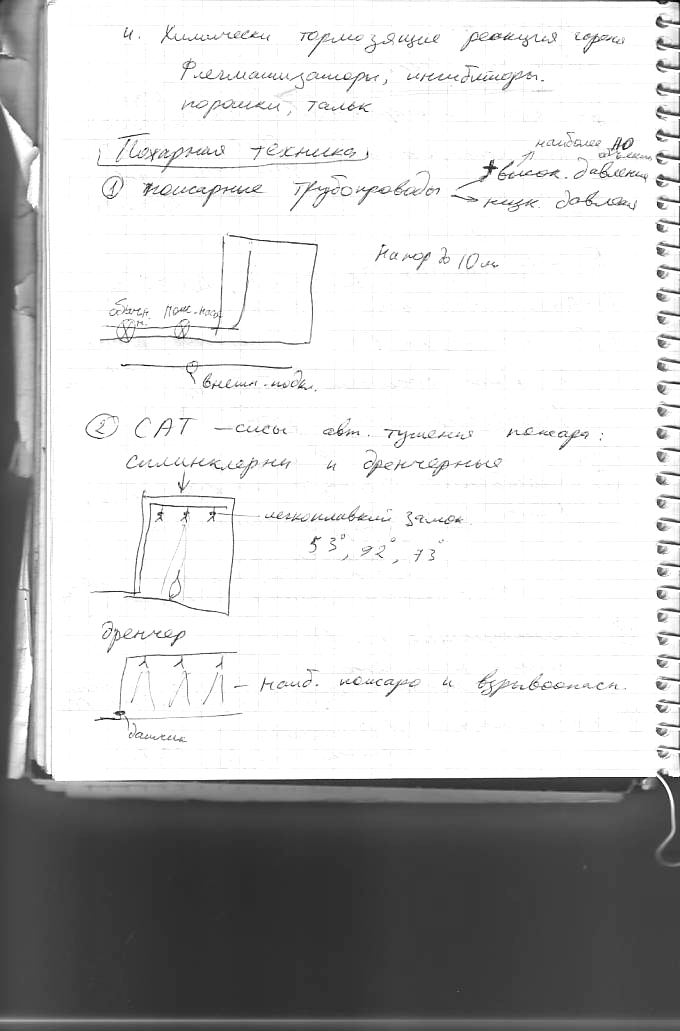 4. Химически тормозящие реакция горен
Флегматизаторы, ингибиторы.
порошки, тальк
Пожарная техника
наиболее ПО
① пожарные трубопроводы → высок. давления
→ низк. давлен
Напор до 10 м
обычн. н. пож. нас
внешн. подкл.
② САТ – сисы авт. тушения пожара:
сплинклерны и дренчерные
легкоплавкий замок
53°, 92°, 73°
дренчер
– наиб. пожаро и взрывоопасн.
датчик